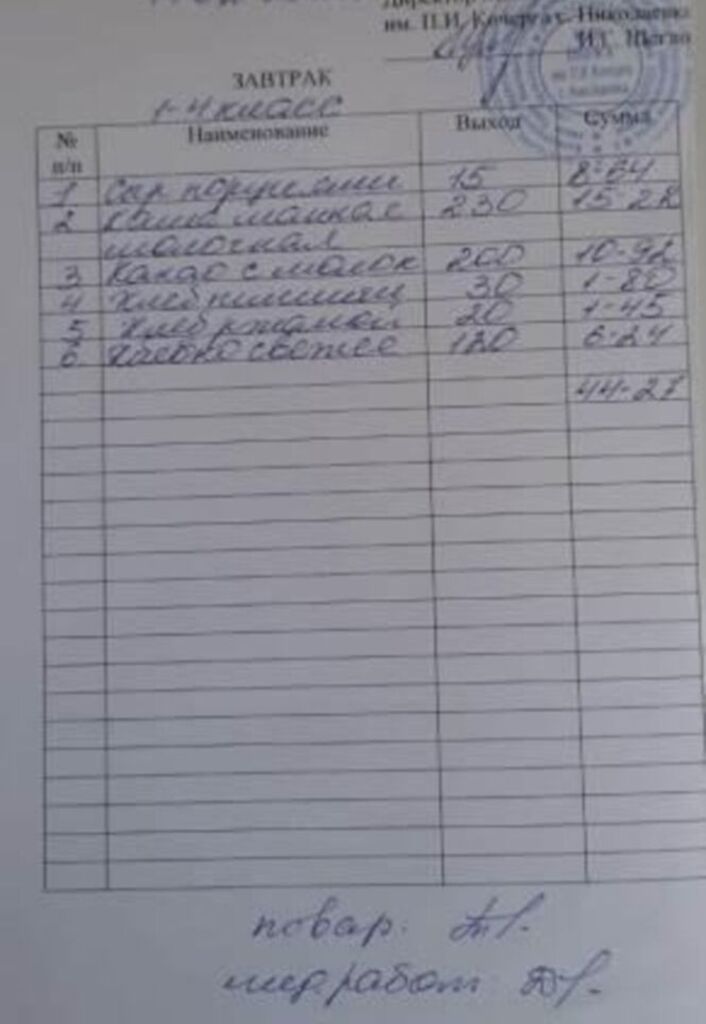 им. П.И. Кочерга с. Николаевка
ЗАВТРАК
1-4 класс
№ п/п Наименование Выход Сумма
1 Сыр порциями 15 8-64
2 Каша манная 230 15-22
молочная
3 Какао с молок 200 10-92
4 Хлеб пшениц 30 1-80
5 Хлеб ржаной 20 1-45
6 Яблоко свежее 120 6-24
44-27
повар:
мед.работ: